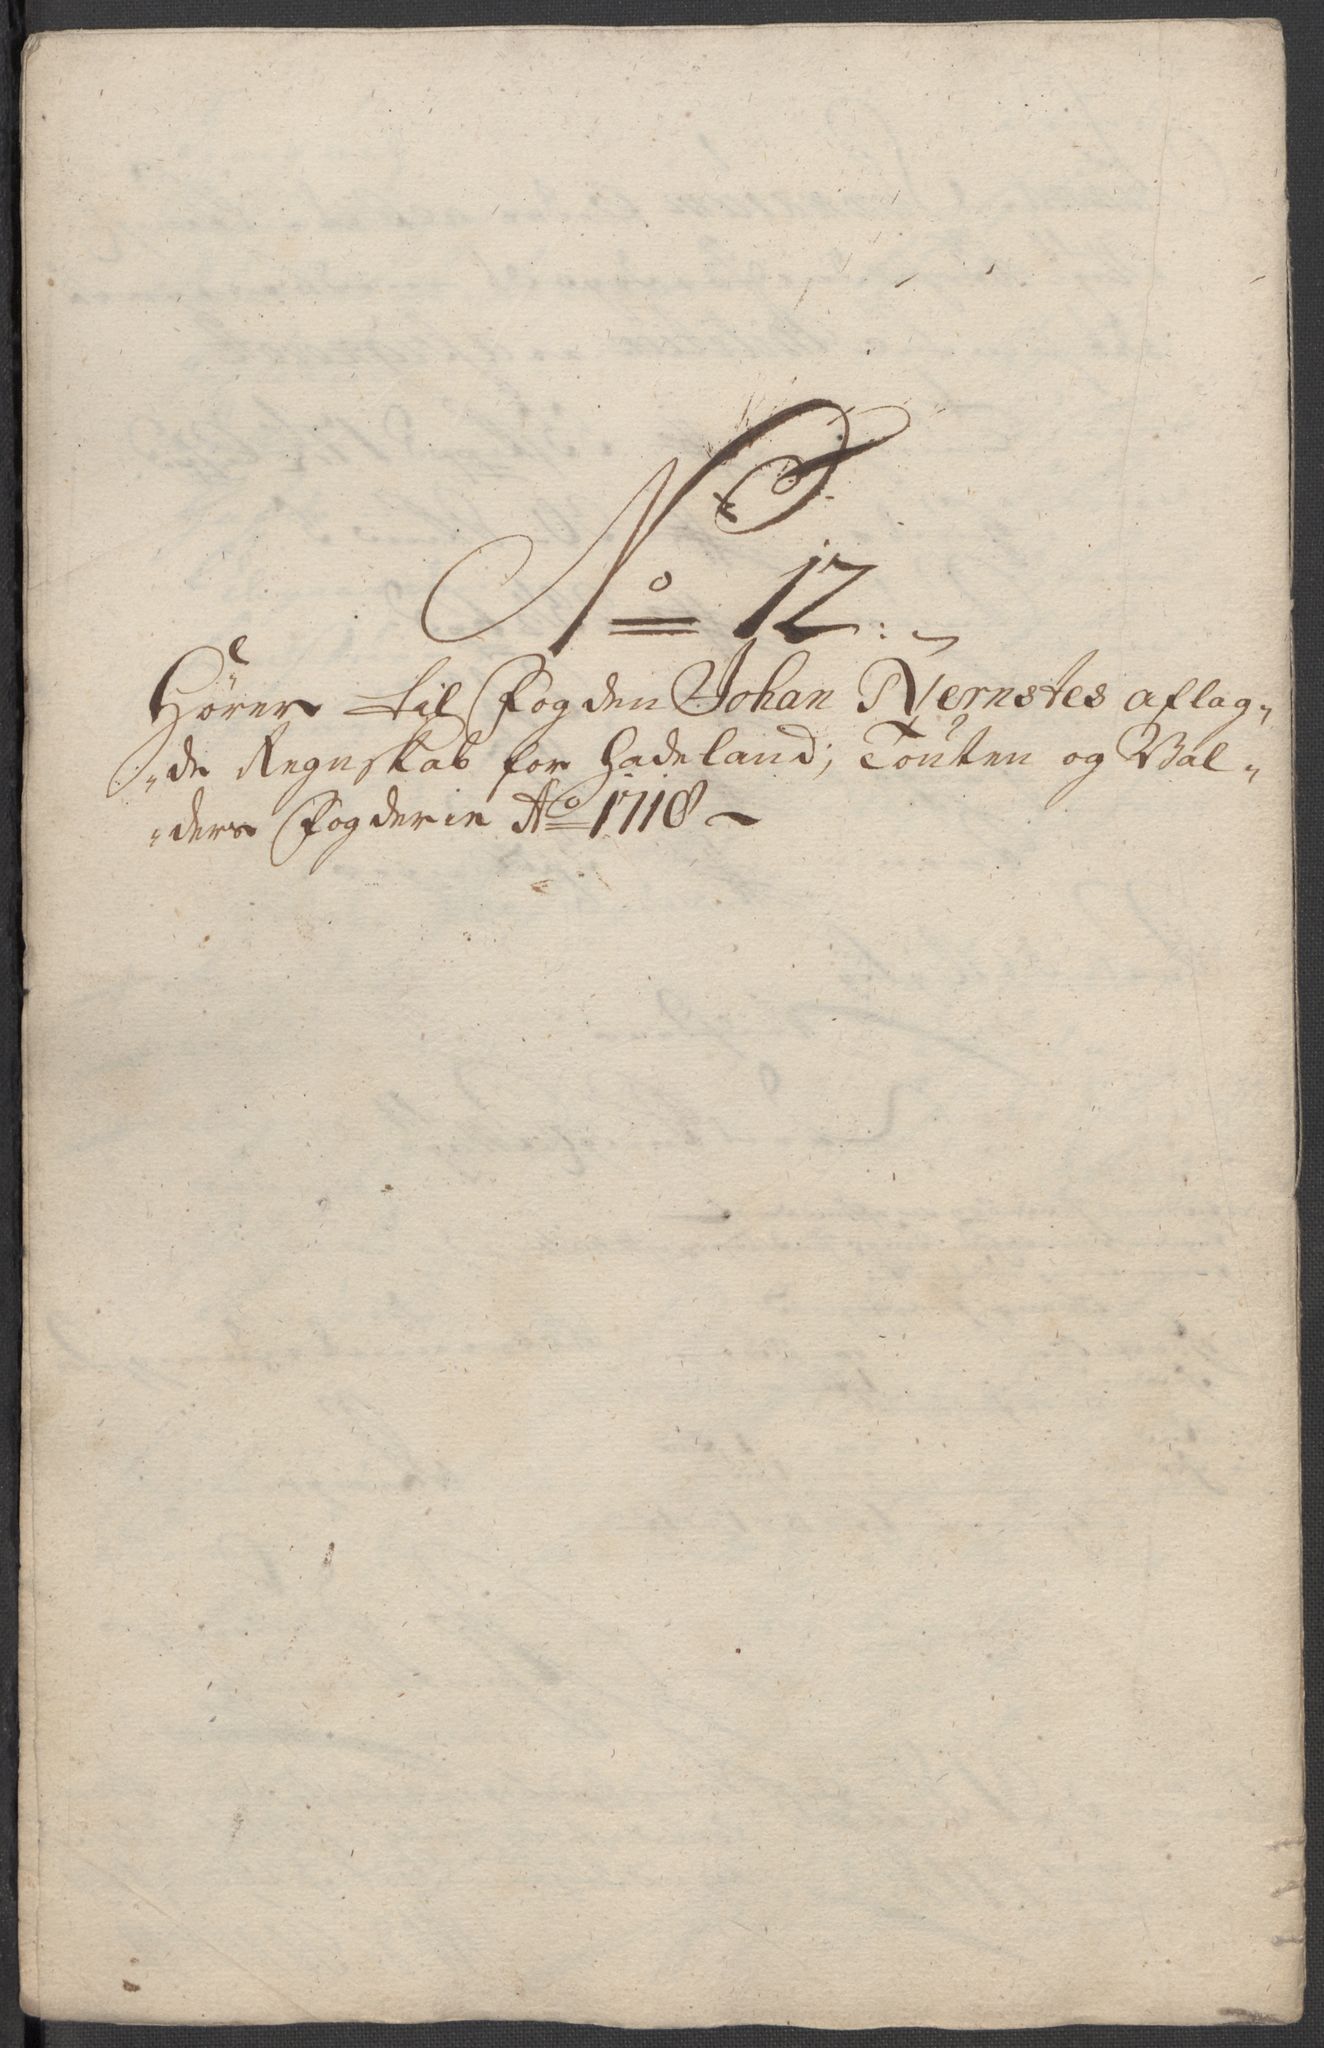 No 12.
Hörer til Fogden Johan Nernstes aflag-
de Regnskab for Hadeland, Touten og Val-
ders Fogderie Ao 1718